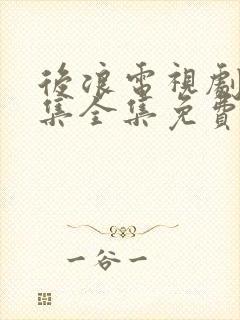 後浪電視劇
集全集免費
一谷一